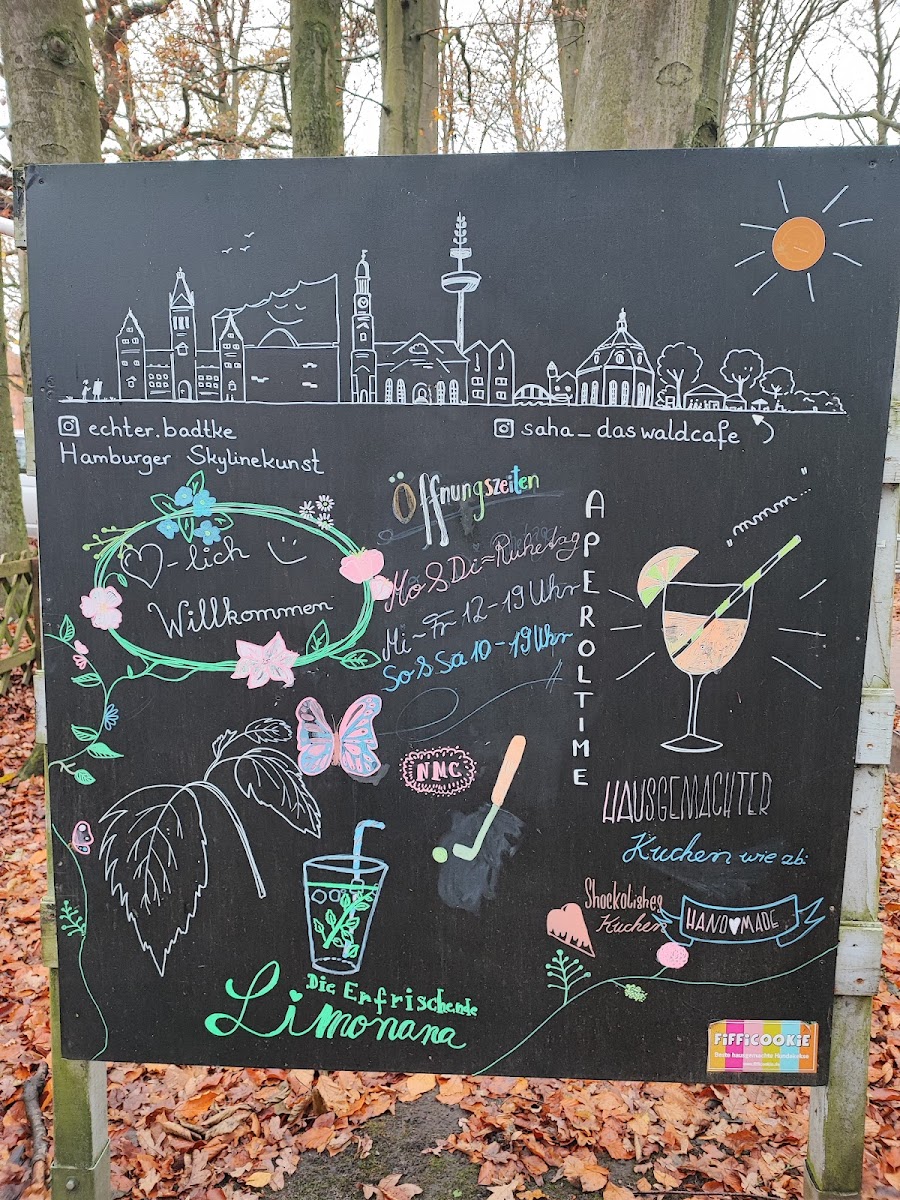 echter.badtke
Hamburger Skylinekunst
saha_daswaldcafe
Öffnungszeiten
Mo & Di = Ruhetag
Mi - Fr 12-19 Uhr
So & Sa 10-19 Uhr
-lich
Willkommen
APEROLTIME
"mmm..."
NMC
HAUSGEMACHTER
Kuchen wie zb:
Shockolishes
Kuchen
HANDMADE
Die Erfrischende
Limonana
FiFFiCOOKiE
Beste hausgemachte Hundekekse